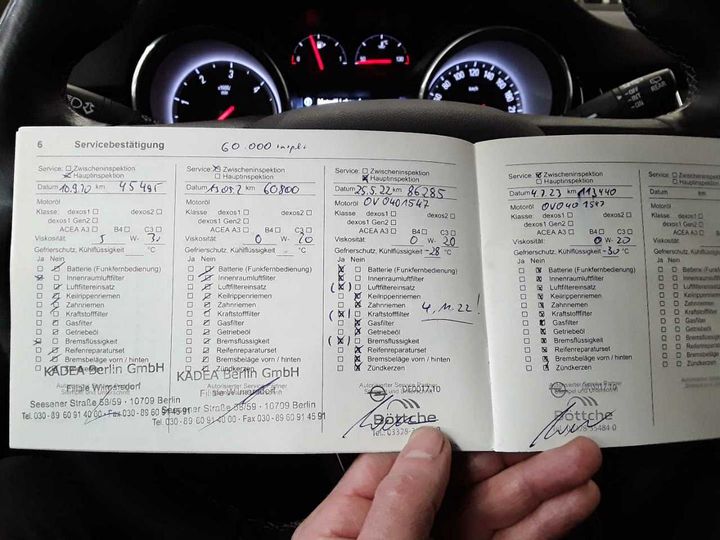 6 Servicebestätigung
60.000
Service: Zwischeninspektion
Hauptinspektion
Datum 10.9.20 km 45495
Motoröl
Klasse: dexos1 dexos2
dexos1 Gen2
ACEA A3 B4 C3
Viskosität: 5 W- 30
Gefrierschutz, Kühlflüssigkeit °C
Ja Nein
Batterie (Funkfernbedienung)
Innenraumluftfilter
Luftfiltereinsatz
Keilrippenriemen
Zahnriemen
Kraftstofffilter
Gasfilter
Getriebeöl
Bremsflüssigkeit
Reifenreparaturset
Bremsbeläge vorn / hinten
Zündkerzen
KADEA Berlin GmbH
Filiale Wilmersdorf
Seesener Straße 58/59 · 10709 Berlin
Tel. 030 - 89 60 91 40 00 · Fax 030 - 89 60 91 45 91
Service: Zwischeninspektion
Hauptinspektion
Datum km 60800
Motoröl
Klasse: dexos1 dexos2
dexos1 Gen2
ACEA A3 B4 C3
Viskosität: 0 W- 20
Gefrierschutz, Kühlflüssigkeit °C
Ja Nein
Batterie (Funkfernbedienung)
Innenraumluftfilter
Luftfiltereinsatz
Keilrippenriemen
Zahnriemen
Kraftstofffilter
Gasfilter
Getriebeöl
Bremsflüssigkeit
Reifenreparaturset
Bremsbeläge vorn / hinten
Zündkerzen
KADEA Berlin GmbH
Filiale Wilmersdorf
Seesener Straße 58/59 · 10709 Berlin
Tel. 030 - 89 60 91 40 00 · Fax 030 - 89 60 91 45 91
Service: Zwischeninspektion
Hauptinspektion
Datum 25.5.22 km 86285
Motoröl OV0401547
Klasse: dexos1 dexos2
dexos1 Gen2
ACEA A3 B4 C3
Viskosität: 0 W- 20
Gefrierschutz, Kühlflüssigkeit -28 °C
Ja Nein
Batterie (Funkfernbedienung)
Innenraumluftfilter
Luftfiltereinsatz
Keilrippenriemen
Zahnriemen
Kraftstofffilter
4.11.22!
Gasfilter
Getriebeöl
Bremsflüssigkeit
Reifenreparaturset
Bremsbeläge vorn / hinten
Zündkerzen
Autorisierter Service Partner
Böttche
Tel.: 03328-
Service: Zwischeninspektion
Hauptinspektion
Datum 4.7.23 km 113440
Motoröl OV0401547
Klasse: dexos1 dexos2
dexos1 Gen2
ACEA A3 B4 C3
Viskosität: 0 W- 20
Gefrierschutz, Kühlflüssigkeit -30 °C
Ja Nein
Batterie (Funkfernbedienung)
Innenraumluftfilter
Luftfiltereinsatz
Keilrippenriemen
Zahnriemen
Kraftstofffilter
Gasfilter
Getriebeöl
Bremsflüssigkeit
Reifenreparaturset
Bremsbeläge vorn / hinten
Zündkerzen
Autorisierter Service Partner
Böttche
Service:
Datum
Motoröl
Klasse: dexos1
dexos1 Gen2
ACEA A3
Viskosität:
Gefrierschutz, Kühlflüssi
Ja Nein
Batterie (Funkf
Innenraumluft
Luftfiltereinsa
Keilrippenrie
Zahnriemen
Kraftstofffilt
Gasfilter
Getriebeöl
Bremsflüs
Reifenrep
Bremsbel
Zündker
1 2 3 4
50 130
OFF
INT
ON
REAR